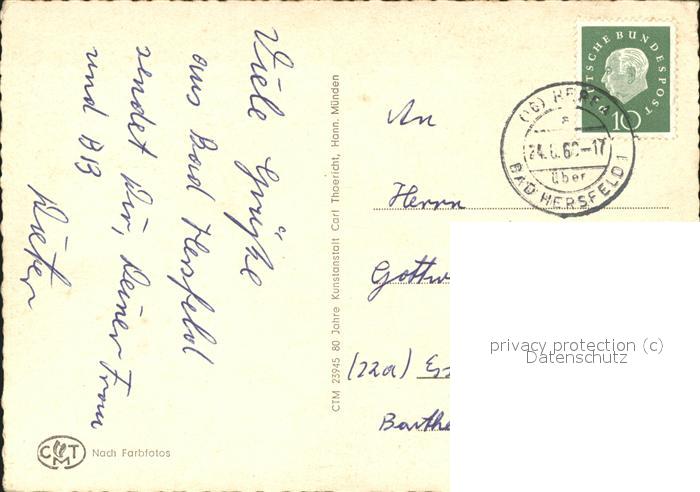 Viele Grüße
aus Bad Hersfeld
sendet Dir, Deiner Frau
und BB
Dieter
CTM 23945 80 Jahre Kunstanstalt Carl Thoericht, Hann. Münden
CTM
Nach Farbfotos
DEUTSCHE BUNDESPOST
10
(16) HERFA
a
24.6.60-17
über
BAD HERSFELD 1
An
Herrn
Gottw
(22a) Es
Barthe
privacy protection (c)
Datenschutz